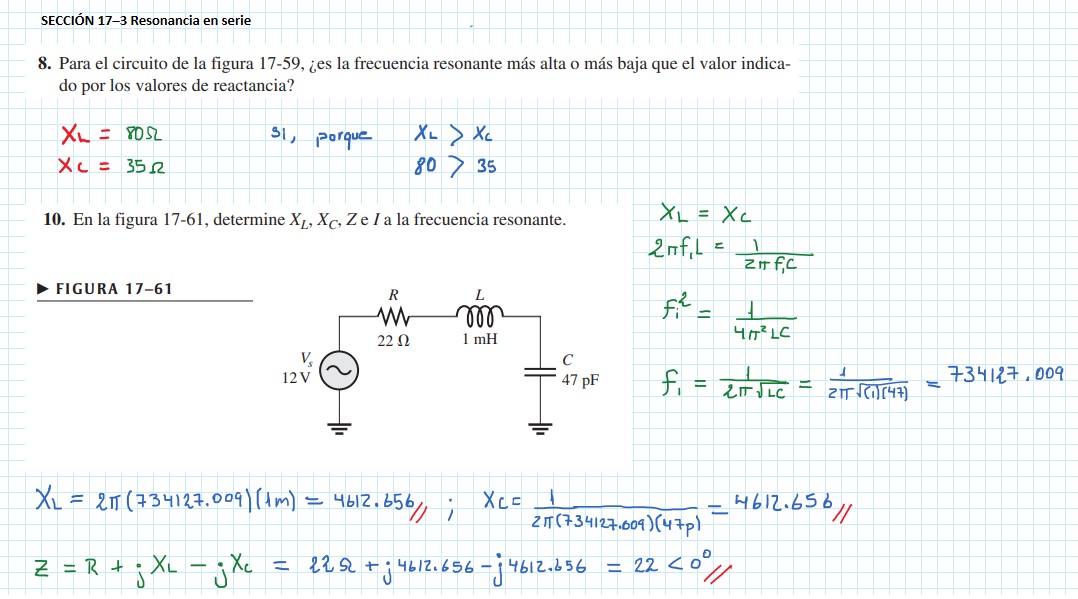 SECCIÓN 17–3 Resonancia en serie
8. Para el circuito de la figura 17-59, ¿es la frecuencia resonante más alta o más baja que el valor indica-
do por los valores de reactancia?
XL = 80Ω
XC = 35Ω
SI, porque XL > XC
80 > 35
10. En la figura 17-61, determine XL, XC, Z e I a la frecuencia resonante.
▶ FIGURA 17–61
R
22 Ω
L
1 mH
Vs
12 V
C
47 pF
XL = XC
2πf₁L = 1/(2πf₁C)
f₁² = 1/(4π²LC)
f₁ = 1/(2π√LC) = 1/(2π√(1)(47)) = 734127.009
XL = 2π(734127.009)(1m) = 4612.656// ; XC = 1/(2π(734127.009)(47p)) = 4612.656//
Z = R + jXL - jXC = 22Ω + j4612.656 - j4612.656 = 22 < 0°//